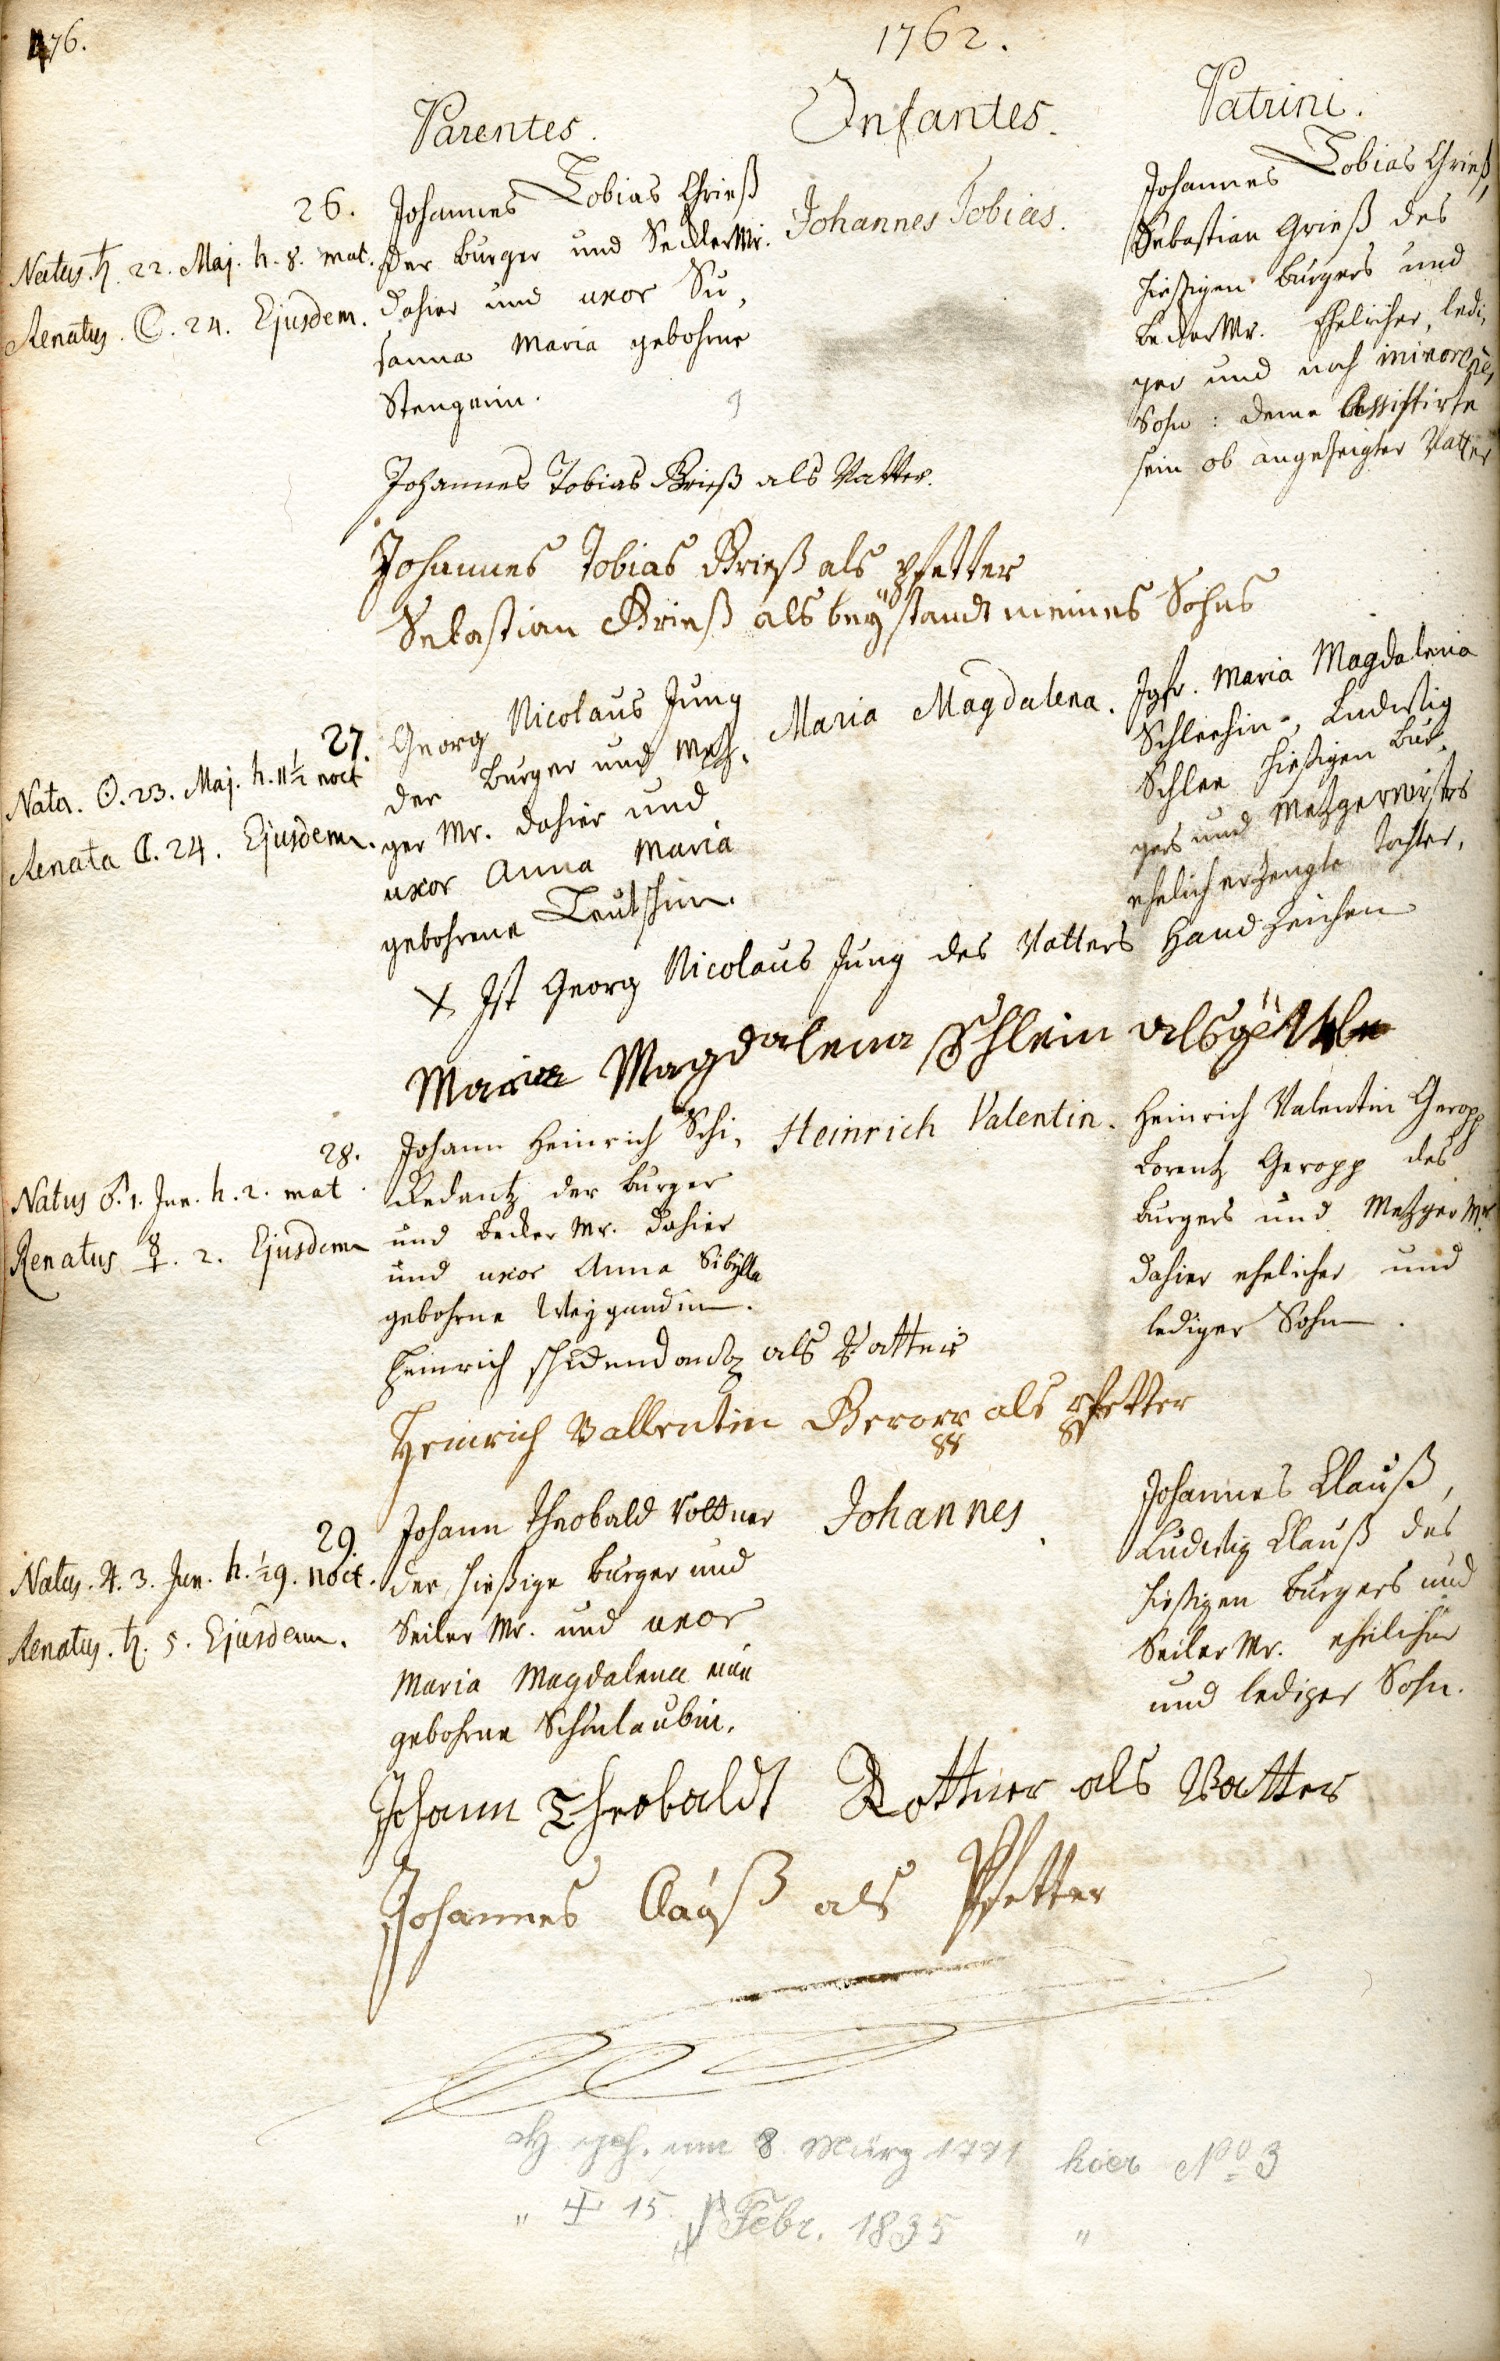 476.
1762.
Parentes.
Infantes.
Patrini.
26.
Natus. ♄. 22. Maj. h. 8. mat.
Renatus. ☾. 24. Ejusdem.
Johannes Tobias Grieß
der burger und SecklerMr.
dahier und uxor Su,
sanna Maria gebohrne
Stengerin.
Johannes Tobias.
Johannes Tobias Grieß,
Sebastian Grieß des
hießigen burgers und
beckerMr. Ehelicher, ledi,
ger und noch
Sohn: deme assistirte
sein ob angezeigter Vatter
Johannes Tobias Grieß als Vatter.
Johannes Tobias Grieß als Pfetter
Sebastian Grieß als beystandt meines Sohns
27.
Nata. ☉. 23. Maj. h. 11½ noct
Renata ☾. 24. Ejusdem.
Georg Nicolaus Jung
der burger und Metz,
ger Mr. dahier und
uxor Anna Maria
gebohrene Teutschin.
Maria Magdalena.
Jgfr. Maria Magdalena
Schleehin, Ludwig
Schlee hießigen bur,
gers und Metzgermeisters
ehelich erzeugte Tochter.
X Ist Georg Nicolaus Jung des Vatters Handzeichen
Maria Magdalena Schlein als göttle
28.
Natus ♂. 1. Jun. h. 2. mat.
Renatus ☿. 2. Ejusdem
Johann Heinrich Schi,
ckedantz der burger
und becker Mr. dahier
und uxor Anna Sibylla
gebohrne Weygandin.
Heinrich Valentin.
Heinrich Valentin Geropp
Lorentz Geropp des
burgers und Metzger Mr.
dahier ehelicher und
lediger Sohn.
Heinrich schickendantz als Vatter
Heinrich Vallentin Geropp als Pfetter
29.
Natus. ♃. 3. Jun. h. ½9. noct.
Renatus. ♄. 5. Ejusdem.
Johann Theobald Rottner
der hießige burger und
Seiler Mr. und uxor
Maria Magdalena eine
gebohrne Schönlaubin.
Johannes.
Johannes Clauß,
Ludwig Clauß des
hießigen burgers und
Seiler Mr. ehelicher
und lediger Sohn.
Johann Theobaldt Rottner als Vatter
Johannes Clauß als Pfetter
geh. am 8. März 1791 hier No 3
" 15 Febr. 1835 "